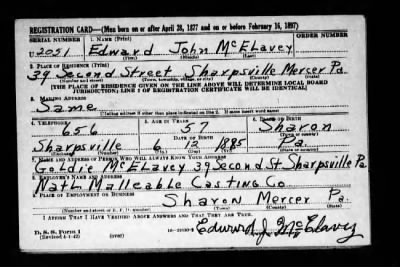 REGISTRATION CARD—(Men born on or after April 28, 1877 and on or before February 16, 1897)
SERIAL NUMBER 1. NAME (Print) ORDER NUMBER
U 2051 Edward John McElavey
(First) (Middle) (Last)
2. PLACE OF RESIDENCE (Print)
39 Second Street Sharpsville Mercer Pa.
(Number and street) (Town, township, village, or city) (County) (State)
[THE PLACE OF RESIDENCE GIVEN ON THE LINE ABOVE WILL DETERMINE LOCAL BOARD
JURISDICTION; LINE 2 OF REGISTRATION CERTIFICATE WILL BE IDENTICAL]
3. MAILING ADDRESS
Same
[Mailing address if other than place indicated on line 2. If same insert word same]
4. TELEPHONE 5. AGE IN YEARS 6. PLACE OF BIRTH
656 57 Sharon
DATE OF BIRTH
Sharpsville 6 12 1885 Pa.
(Exchange) (Number) (Mo.) (Day) (Yr.) (State or country)
7. NAME AND ADDRESS OF PERSON WHO WILL ALWAYS KNOW YOUR ADDRESS
Goldie McElavey 39 Second St. Sharpsville Pa
8. EMPLOYER'S NAME AND ADDRESS
Natl Malleable Casting Co.
9. PLACE OF EMPLOYMENT OR BUSINESS
Sharon Mercer Pa.
(Number and street or R. F. D. number) (Town) (County) (State)
I AFFIRM THAT I HAVE VERIFIED ABOVE ANSWERS AND THAT THEY ARE TRUE.
D. S. S. Form 1
(Revised 4-1-42) (over)
Edward J. McElavey